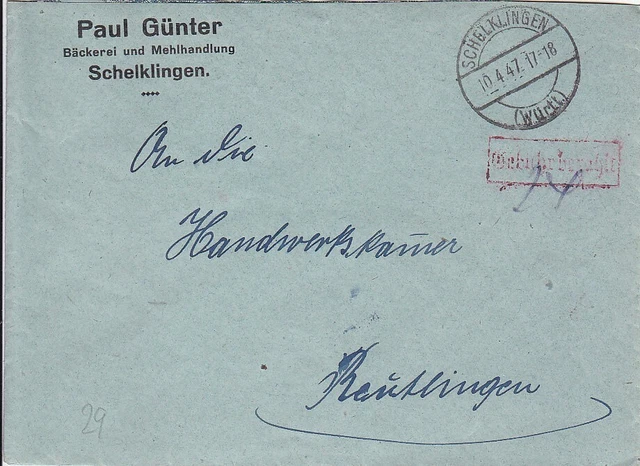 Paul Günter
Bäckerei und Mehlhandlung
Schelklingen.
SCHELKLINGEN
10.4.47.17-18
(Württ)
Gebühr bezahlt
24
An die
Handwerkskam̄er
Reutlingen
29